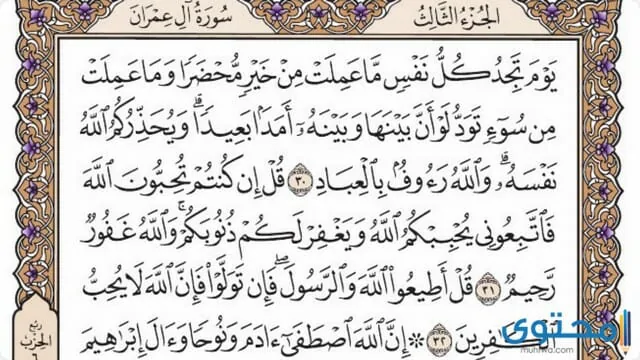 الجزء الثالث
سورة آل عمران
يَوْمَ تَجِدُ كُلُّ نَفْسٍ مَّا عَمِلَتْ مِنْ خَيْرٍ مُّحْضَرًا وَمَا عَمِلَتْ
مِن سُوٓءٍ تَوَدُّ لَوْ أَنَّ بَيْنَهَا وَبَيْنَهُۥٓ أَمَدَۢا بَعِيدًاۗ وَيُحَذِّرُكُمُ ٱللَّهُ
نَفْسَهُۥۗ وَٱللَّهُ رَءُوفُۢ بِٱلْعِبَادِ ٣٠ قُلْ إِن كُنتُمْ تُحِبُّونَ ٱللَّهَ
فَٱتَّبِعُونِي يُحْبِبْكُمُ ٱللَّهُ وَيَغْفِرْ لَكُمْ ذُنُوبَكُمْۚ وَٱللَّهُ غَفُورٌ
رَّحِيمٌ ٣١ قُلْ أَطِيعُواْ ٱللَّهَ وَٱلرَّسُولَۖ فَإِن تَوَلَّوْاْ فَإِنَّ ٱللَّهَ لَا يُحِبُّ
ٱلْكَٰفِرِينَ ٣٢ ۞ إِنَّ ٱللَّهَ ٱصْطَفَىٰٓ ءَادَمَ وَنُوحًا وَءَالَ إِبْرَٰهِيمَ
ربع
الحزب
٦
محتوى
muhtwa.com